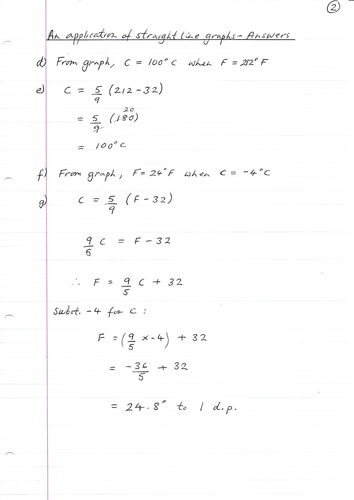 2
An application of straight line graphs - Answers
d) From graph, C = 100°C when F = 212°F
e) C = 5/9 (212 - 32)
= 5/9 (180) 20
= 100°C
f) From graph, F = 24°F when C = -4°C
g) C = 5/9 (F - 32)
9/5 C = F - 32
∴ F = 9/5 C + 32
Subst. -4 for C :
F = (9/5 x -4) + 32
= -36/5 + 32
= 24.8° to 1 d.p.